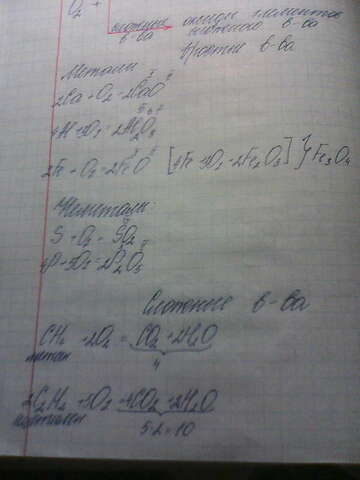 O₂ +
сложные → оксиды элементов
в-ва сложного в-ва
простые в-ва
Металлы
2Ca + O₂ = 2CaO
4Al + 3O₂ = 2Al₂O₃
2Fe + O₂ = 2FeO [4Fe + 3O₂ = 2Fe₂O₃] } Fe₃O₄
Неметаллы:
S + O₂ = SO₂
4P + 5O₂ = 2P₂O₅
Сложные в-ва
CH₄ + 2O₂ = CO₂ + 2H₂O
метан 4
2C₂H₂ + 5O₂ = 4CO₂ + 2H₂O
ацетилен 5·2=10